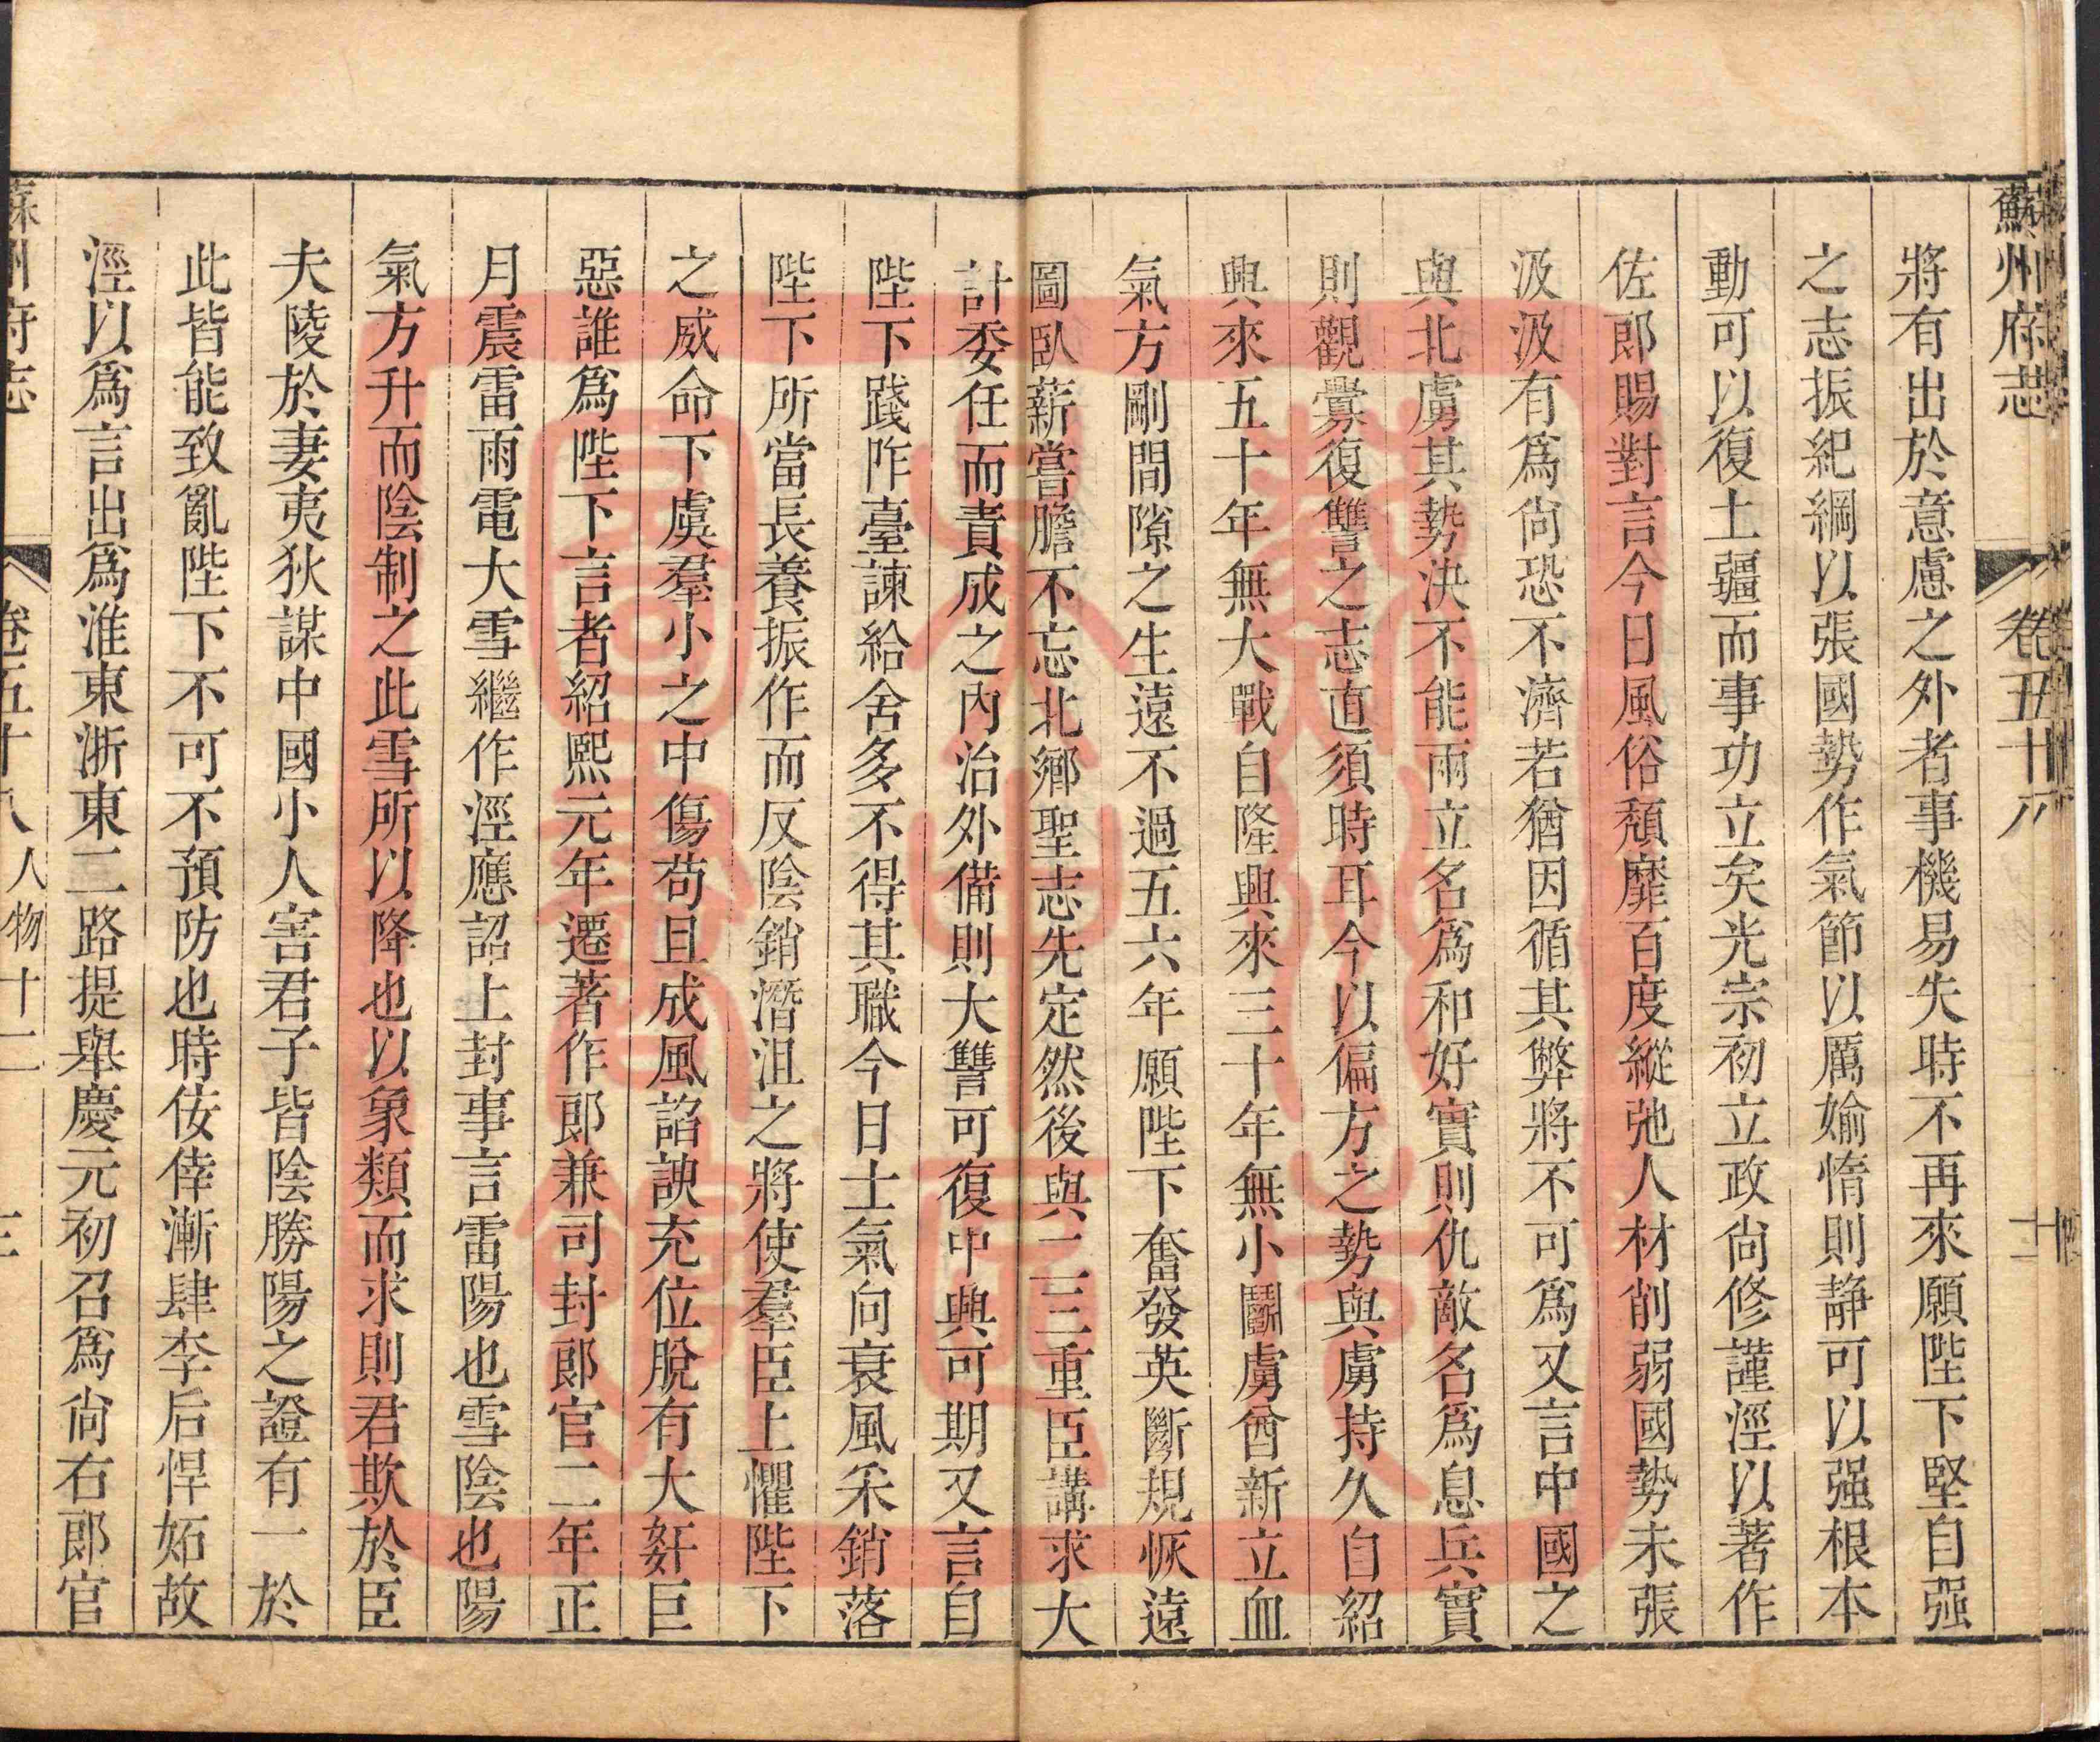 蘇州府志 卷五十八
將有出於意慮之外者事機易失時不再來願陛下堅自强
之志振紀綱以張國勢作氣節以厲婾惰則靜可以强根本
動可以復土疆而事功立矣光宗初立政尙修謹涇以著作
佐郎賜對言今日風俗頹靡百度縱弛人材削弱國勢未張
汲汲有爲尙恐不濟若猶因循其弊將不可爲又言中國之
與北虜其勢決不能兩立名爲和好實則仇敵名爲息兵實
則觀釁復讐之志直須時耳今以偏方之勢與虜持久自紹
興來五十年無大戰自隆興來三十年無小鬭虜酋新立血
氣方剛間隙之生遠不過五六年願陛下奮發英斷規恢遠
圖臥薪嘗膽不忘北鄉聖志先定然後與二三重臣講求大
計委任而責成之內治外備則大讐可復中興可期又言自
陛下踐阼臺諫給舍多不得其職今日士氣向衰風釆銷落
陛下所當長養振作而反陰銷潛沮之將使羣臣上懼陛下
之威命下虞羣小之中傷苟且成風諂諛充位脫有大奸巨
惡誰爲陛下言者紹熙元年遷著作郎兼司封郎官二年正
月震雷雨電大雪繼作涇應詔上封事言雷陽也雪陰也陽
氣方升而陰制之此雪所以降也以象類而求則君欺於臣
夫陵於妻夷狄謀中國小人害君子皆陰勝陽之證有一於
此皆能致亂陛下不可不預防也時佞倖漸肆李后悍妬故
涇以爲言出爲淮東浙東二路提舉慶元初召爲尙右郎官
蘇州府志 卷五十八 人物十二 三